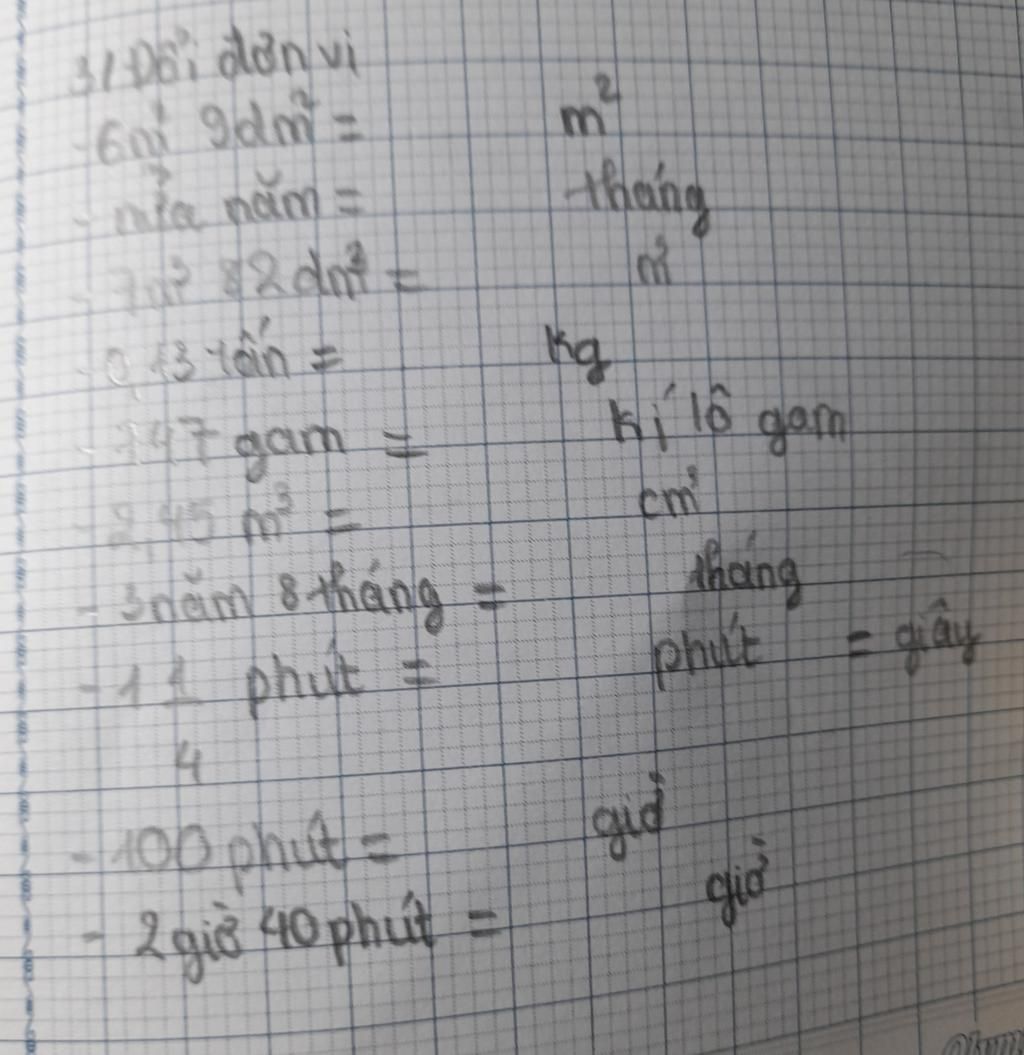 3/ Đổi đơn vị
- 6m² 9dm² = m²
- nửa năm = tháng
82dm³ = m³
tấn = kg
gam = kí lô gam
m³ = cm³
- 3 năm 8 tháng = tháng
- 1 1/4 phút = phút = giây
- 100 phút = giờ
- 2 giờ 40 phút = giờ